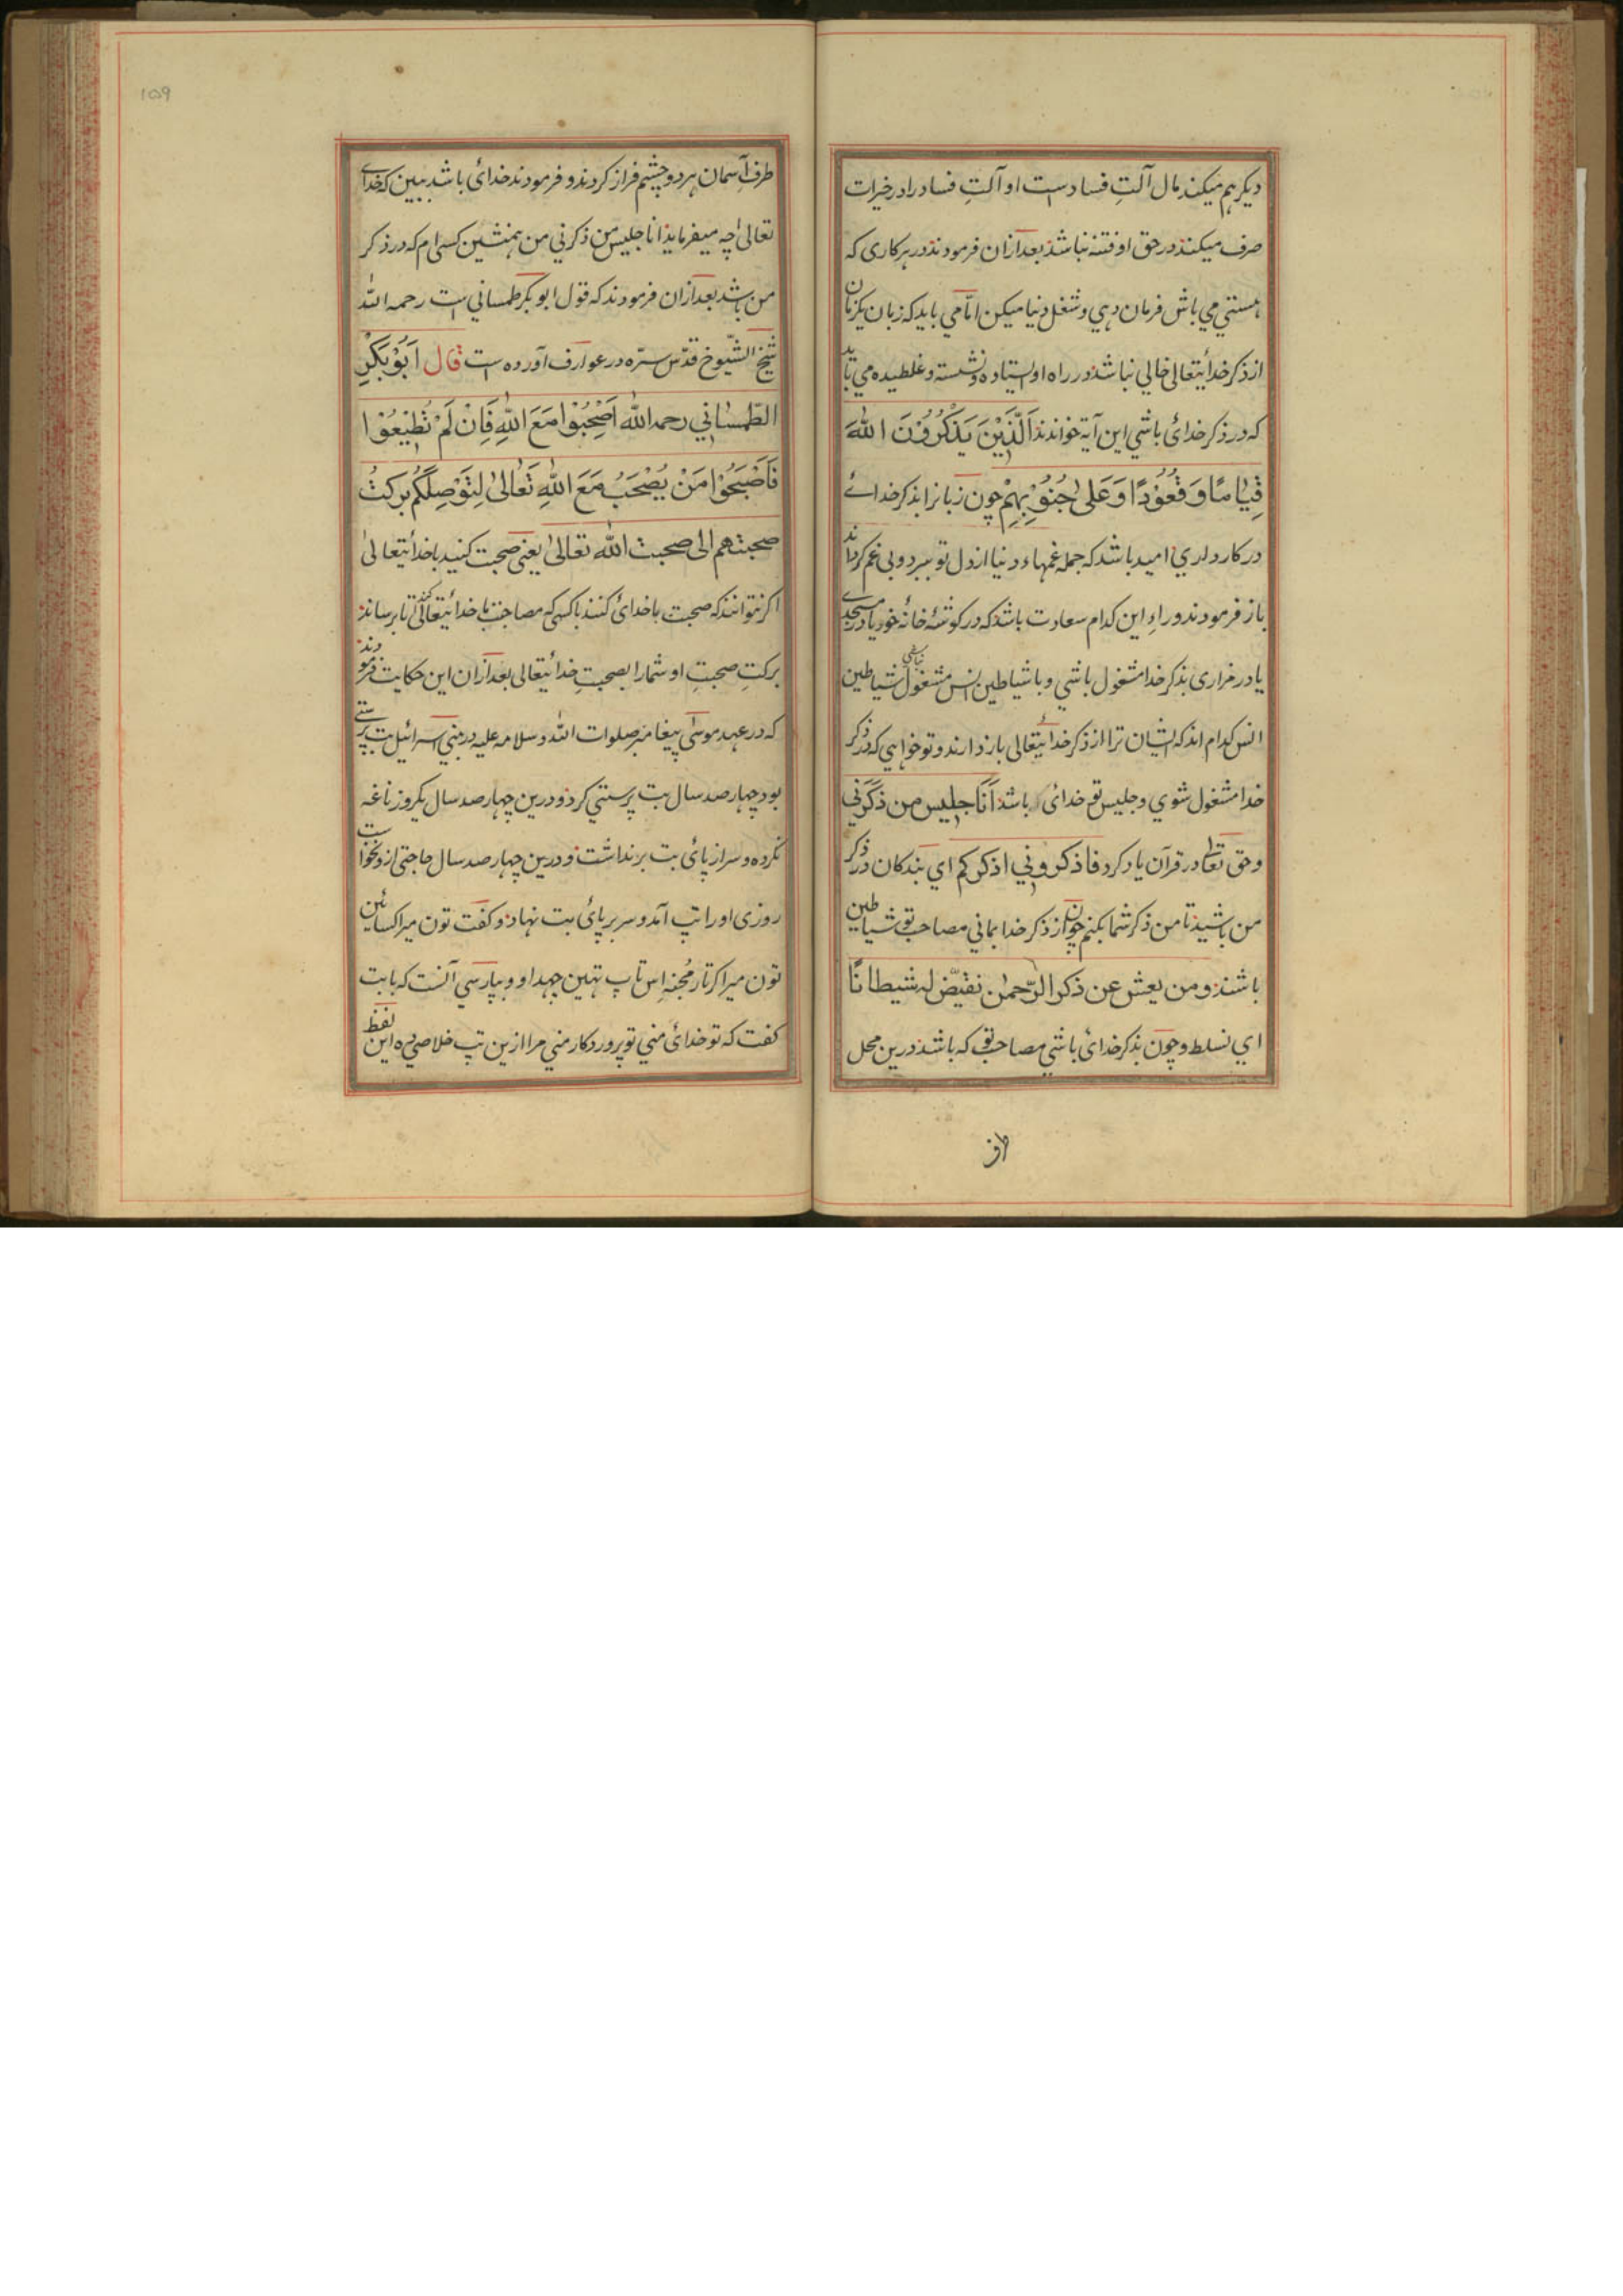 دیکر هم میکند مال آلتِ فساد ست او آلتِ فساد را در خیرات
صرف میکند در حق او فتنه نباشد بعد ازان فرمودند در هر کاری که
هستی می باش فرمان دهی و شغل دنیا میکن امّا می باید که زبان یکزمان
از ذکر خدائیتعالی خالی نباشد در راه او استاده و نشسته و غلطیده می باید
که در ذکر خدائ باشی این آیة خواندند اَلَّذِیْنَ یَذْکُرُوْنَ اللهَ
قِیَامًا وَ قُعُوْدًا وَ عَلیٰ جُنُوْبِهِمْ چون زبانرا بذکر خدائے
در کار داری امید باشد که جمله غمهاء دنیا از دل تو ببرد و بی غم کرداند
باز فرمودند وراءِ این کدام سعادت باشد که در کوشۀ خانۀ خود یا در مسجدے
یا در مزاری بذکر خدا مشغول باشی و با شیاطین انس مشغول نباشی شیاطین
انس کدام اند که ایشان ترا از ذکر خدائیتعالی باز دارند و تو خواهی که در ذکر
خدا مشغول شوی و جلیس تو خدائ باشد اَنَا جلیس من ذکَرَنی
و حق تعالی در قرآن یاد کرد فاذکرونی اذکرکم ای بندکان در ذکر
من باشید تا من ذکر شما بکنم چون از ذکر خدا بمانی مصاحب تو شیاطین
باشند و من یعش عن ذکر الرّحمٰن نقیّض له شیطانًا
ای نسلط و چون بذکر خدائ باشی مصاحب تو که باشد درین محل
طرف
۱۵۹
طرف آسمان هر دو چشم فراز کردند و فرمودند خدائ باشد ببین که خدائے
تعالیٰ چه میفرماید انا جلیس من ذکرنی من همنشین کسی ام که در ذکر
من باشد بعد ازان فرمودند که قول ابو بکر طمسانی است رحمه الله
شیخ الشّیوخ قدّس سرّه در عوارف آورده ست قال اَبُوْ بَکْرٍ
الطّمسانی رحمه الله اَصْحِبُوْا مَعَ اللهِ فَاِنْ لَمْ تُطِیْعُوْا
فَاَصْبَحُوْا مَنْ یُصْحَبُ مَعَ اللهِ تَعَالیٰ لِتَوْصِلَکُمْ برکتُ
صحبتهم الی صحبت الله تعالیٰ یعنی صحبت کنید با خدائیتعالیٰ
اکر نتوانند که صحبت با خدائ کنند با کسی که مصاحبت با خدائیتعالی کند تا برساند
برکتِ صحبتِ او شما را بصحبتِ خدائیتعالی بعد ازان این حکایت فرمودند
که در عهد موسیٰ پیغامبر صلوات الله و سلامه علیه در بنی اسرائیل بت پرستے
بود چهار صد سال بت پرستی کرد و درین چهار صد سال یکروز ناغه
نکرده و سر از پائ بت برنداشت و درین چهار صد سال حاجتی ازو نخواست
روزی او را تپ آمد و سر بر پائ بت نهاد و کفت تون میرا کسائین
تون میرا کرتار مُجنه اِس تاپ تهین چهداو و بپارسی آنست که با بت
کفت که تو خدائ منی تو پروردکار منی مرا ازین تپ خلاصی ده این لفظ